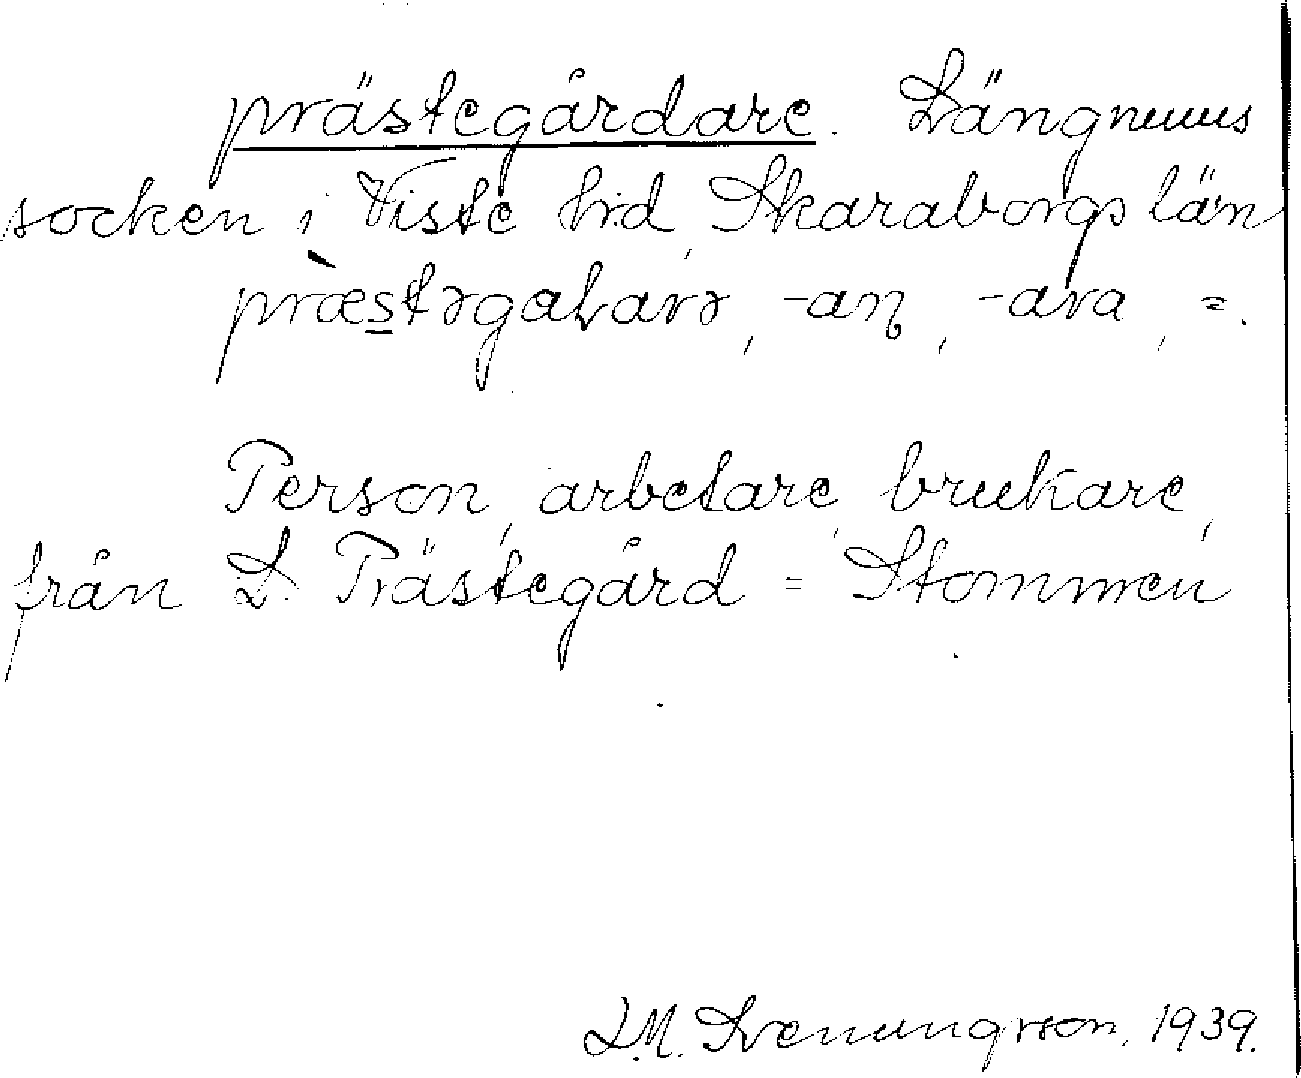 prästegårdare. Längnums
socken i Viste hd Skaraborgs län
præstəgaLarə, -an, -ara, =.
Person, arbetare, brukare,
från L. Prästegård = Stommen
1939.